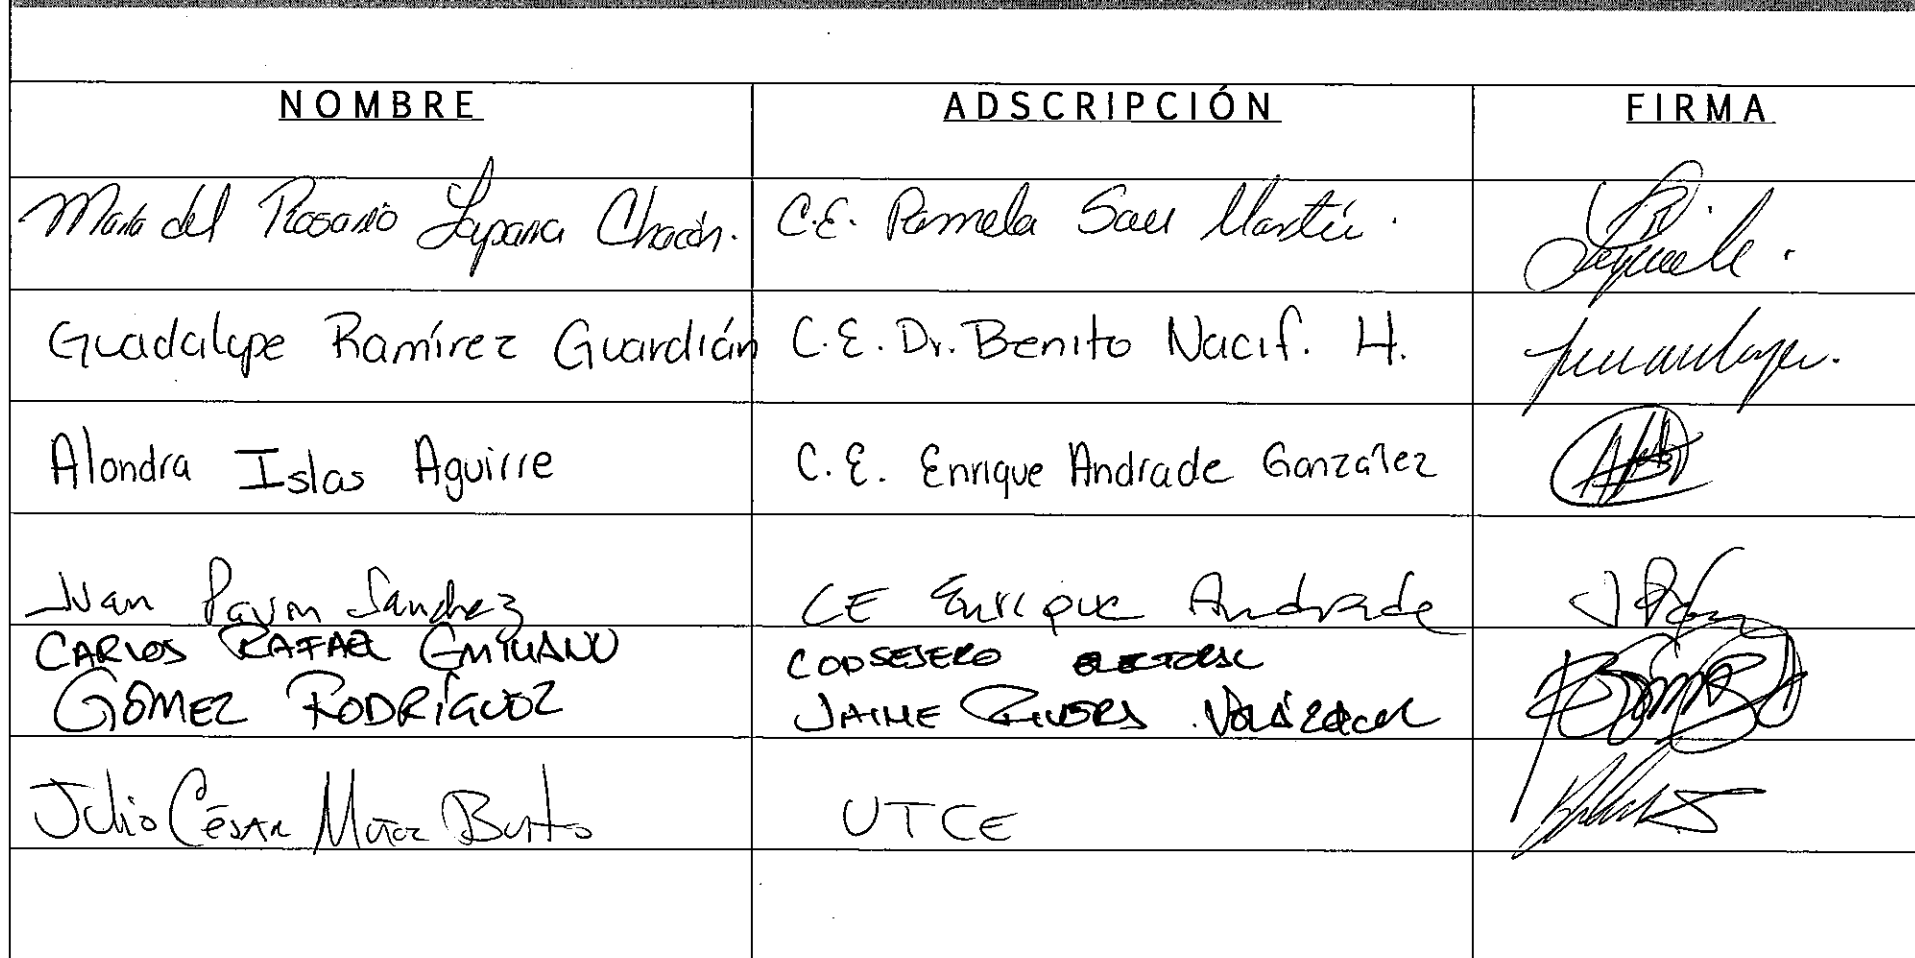 NOMBRE ADSCRIPCIÓN FIRMA
María del Rosario Chacón. C.E. Pamela San Martín.
Guadalupe Ramírez Guardián C.E. Dr. Benito Nacif. H.
Alondra Islas Aguirre C.E. Enrique Andrade González
Juan Pavón Sánchez CE Enrique Andrade
CARLOS RAFAEL EMILIANO CONSEJERO ELECTORAL
GÓMEZ RODRÍGUEZ JAIME RIVERA VELÁZQUEZ
Julio César UTCE